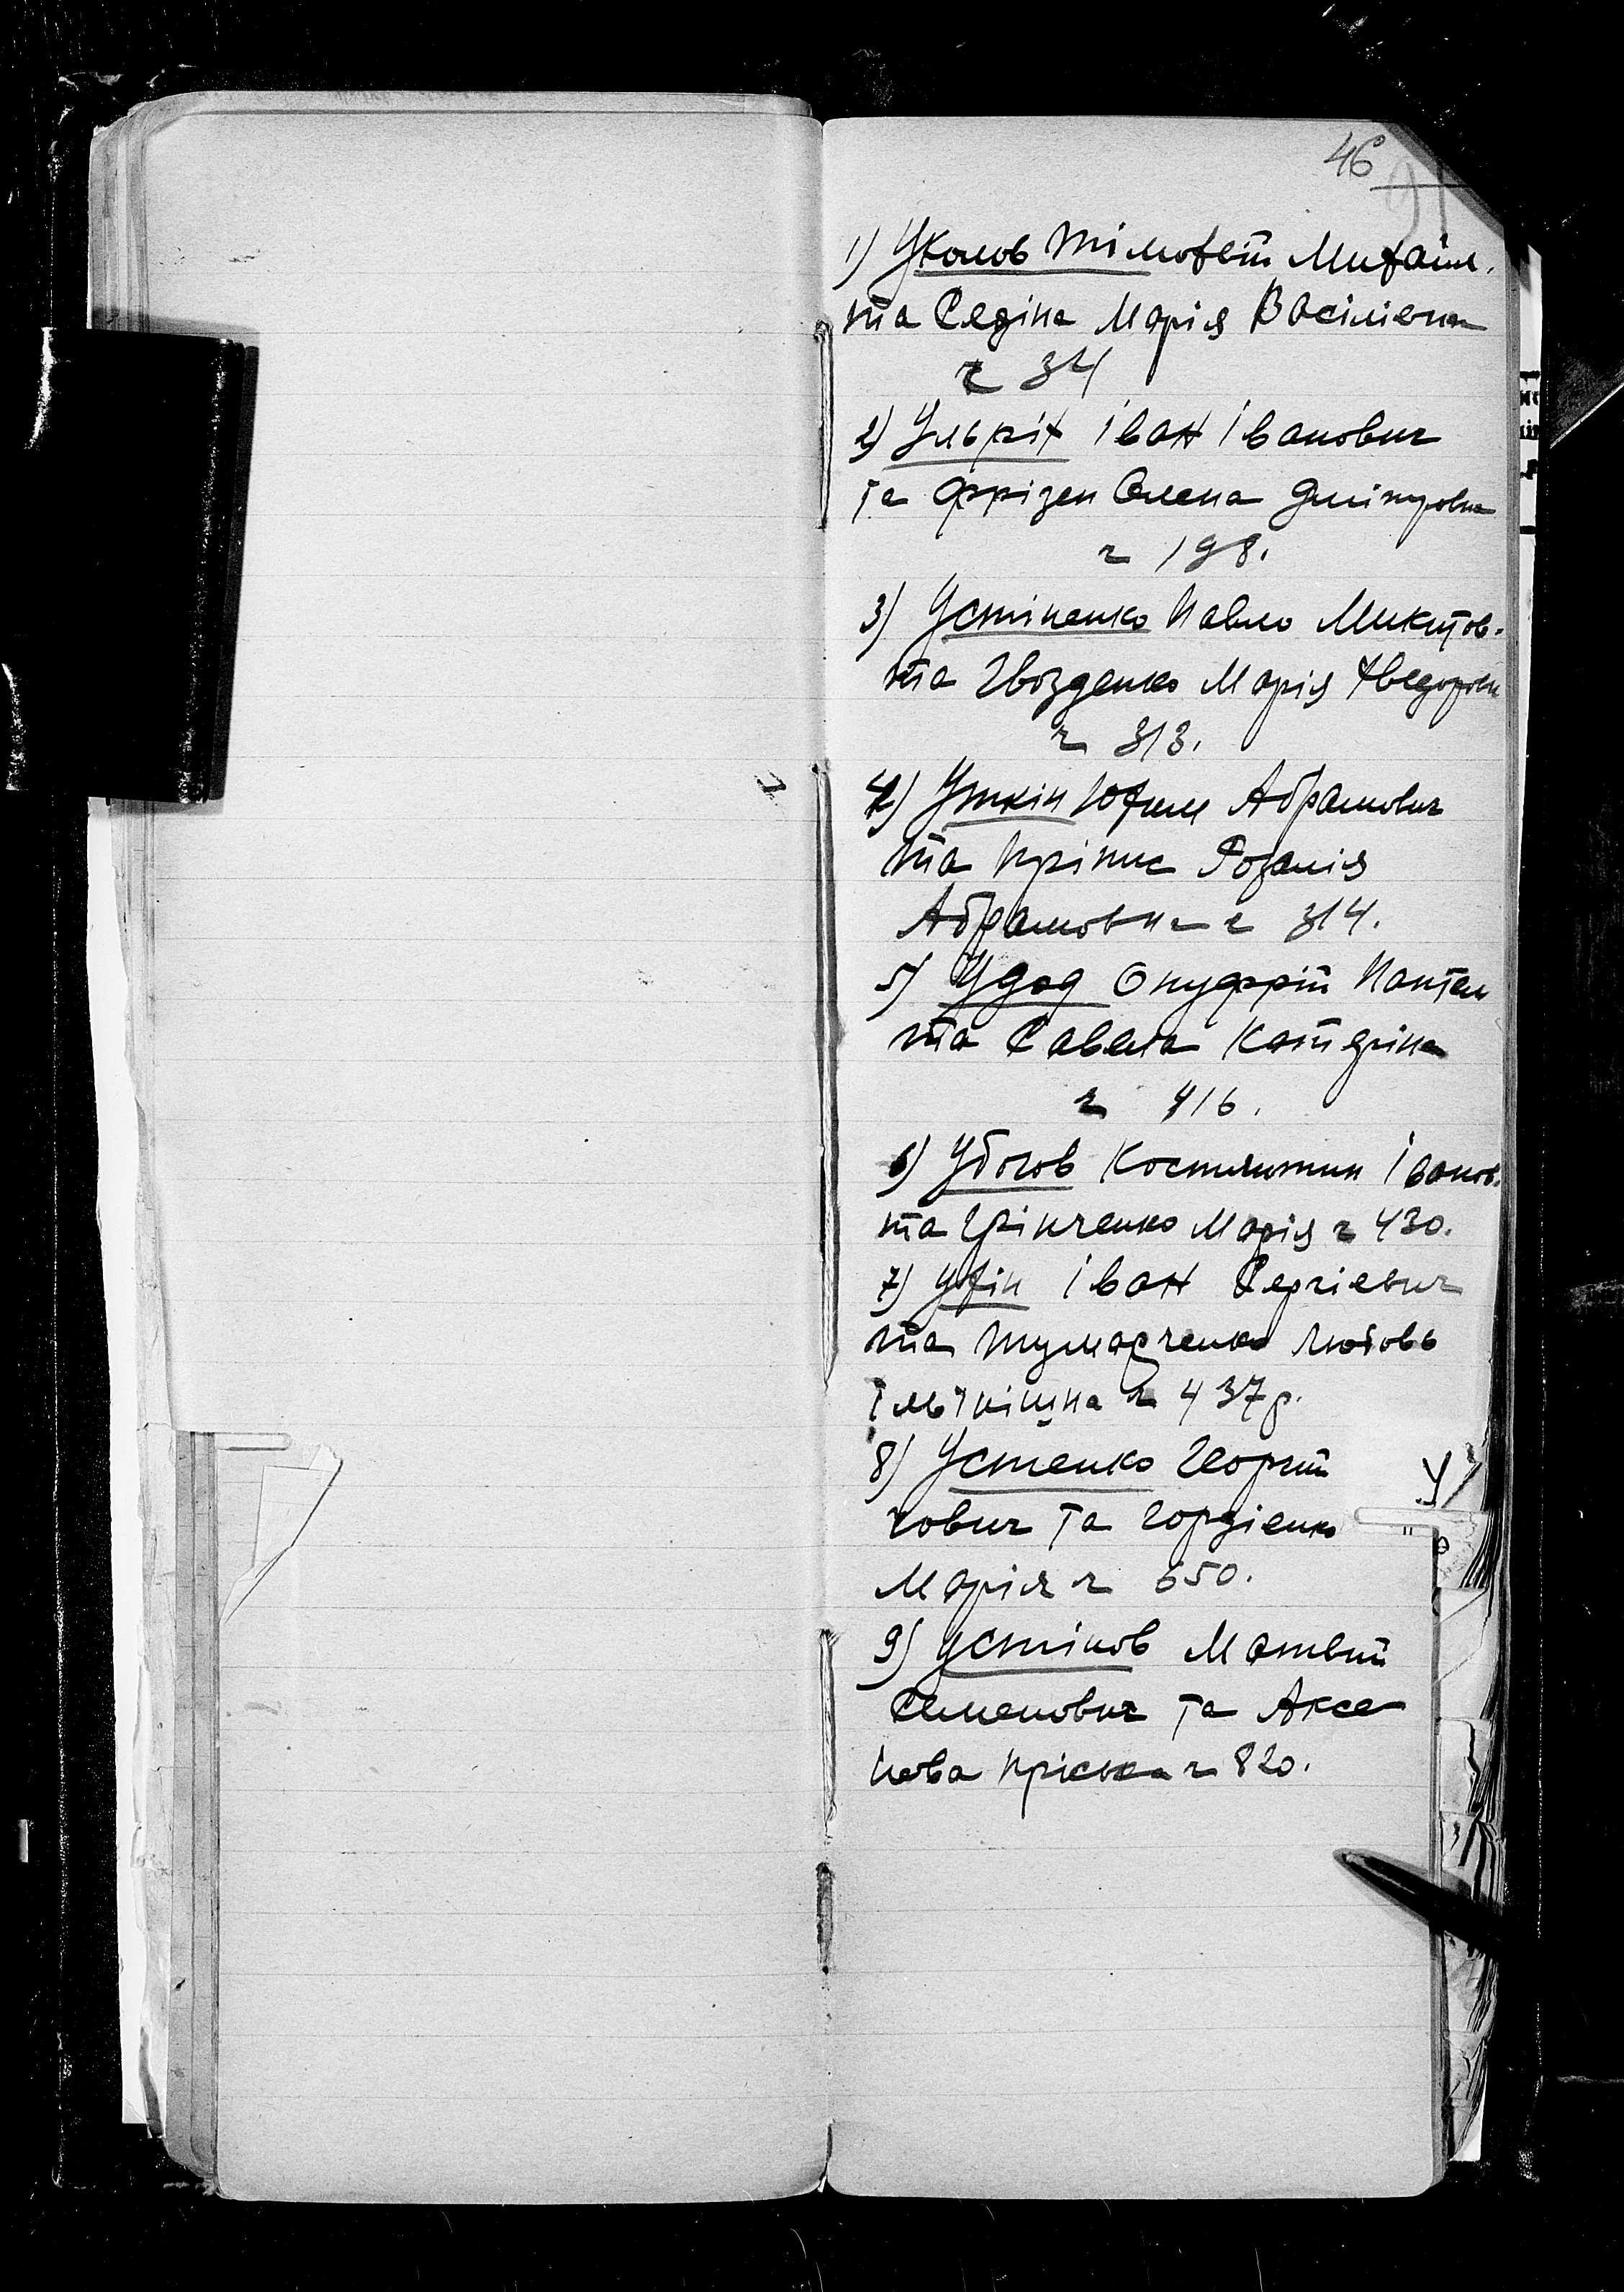 46
91
1) Уколов Тімофей Михайл.
та Седіна Марія Васілівна
ч 34
2) Ульріх Іван Іванович
та Фрізен Олена Дмітровна
ч 198.
3) Устіненко Павло Микитов.
та Гвозденко Марія Хведоровн
ч 313.
4) Уткін Юхим Абрамович
та Розалія
Абрамовна ч 314.
5) Удод Онуфрій Пантел
та Савела Катеріна
ч 416.
6) Убогов Костянтин Іванов.
та Грінченко Марія ч 430.
7) Ухін Іван Сергієвич
та Любовь
ч 437р.
8) Устенко Георгій
та Гордієнко
Марія ч 650.
9) Устінов Матвій
Семенович та Аксе
нова Пріська ч 820.
У